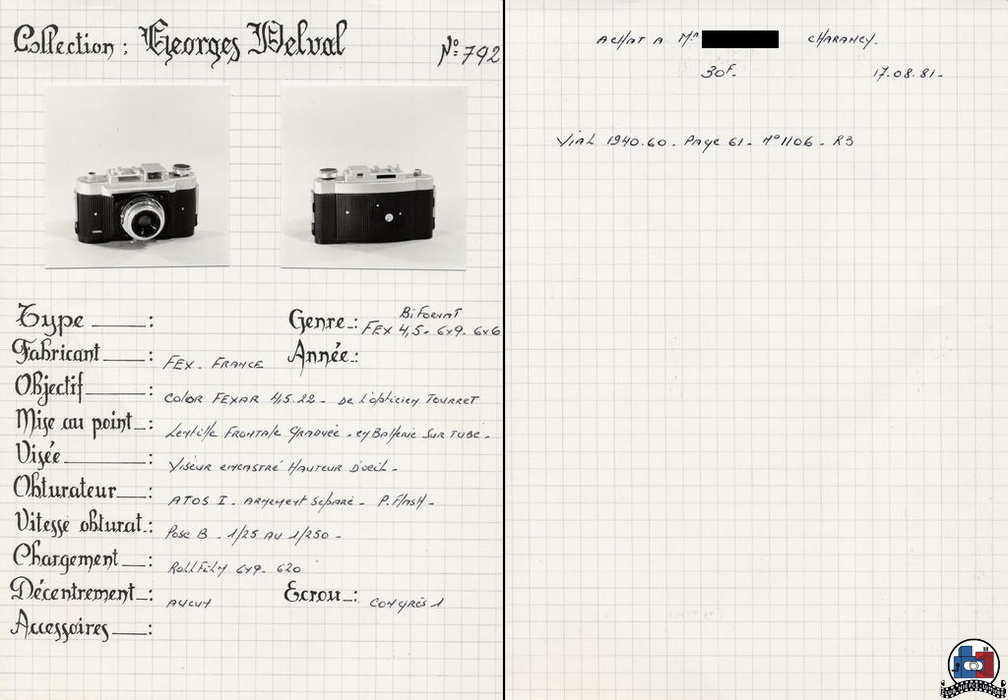 Collection : Georges Delval
N° 792
Type :
Genre : Biformat FEX 4,5 - 6x9 - 6x6
Fabricant : FEX - FRANCE
Année :
Objectif : COLOR FEXAR 4,5.22 - De l'opticien TOURRET
Mise au point : Lentille Frontale Graduée - en Batterie Sur TUBE -
Visée : Viseur encastré Hauteur D'oeil -
Obturateur : ATOS I - Armement Séparé - P.Flash -
Vitesse obturat : Pose B - 1/25 AU 1/250 -
Chargement : RollFilm 6x9 - 620
Décentrement : AUCUN
Ecrou : CONGRÈS 1
Accessoires :
ACHAT A Mr CHARANCY.
30F- 17.08.81-
Vial 1940-60 - Page 61 - N°1106 - R3